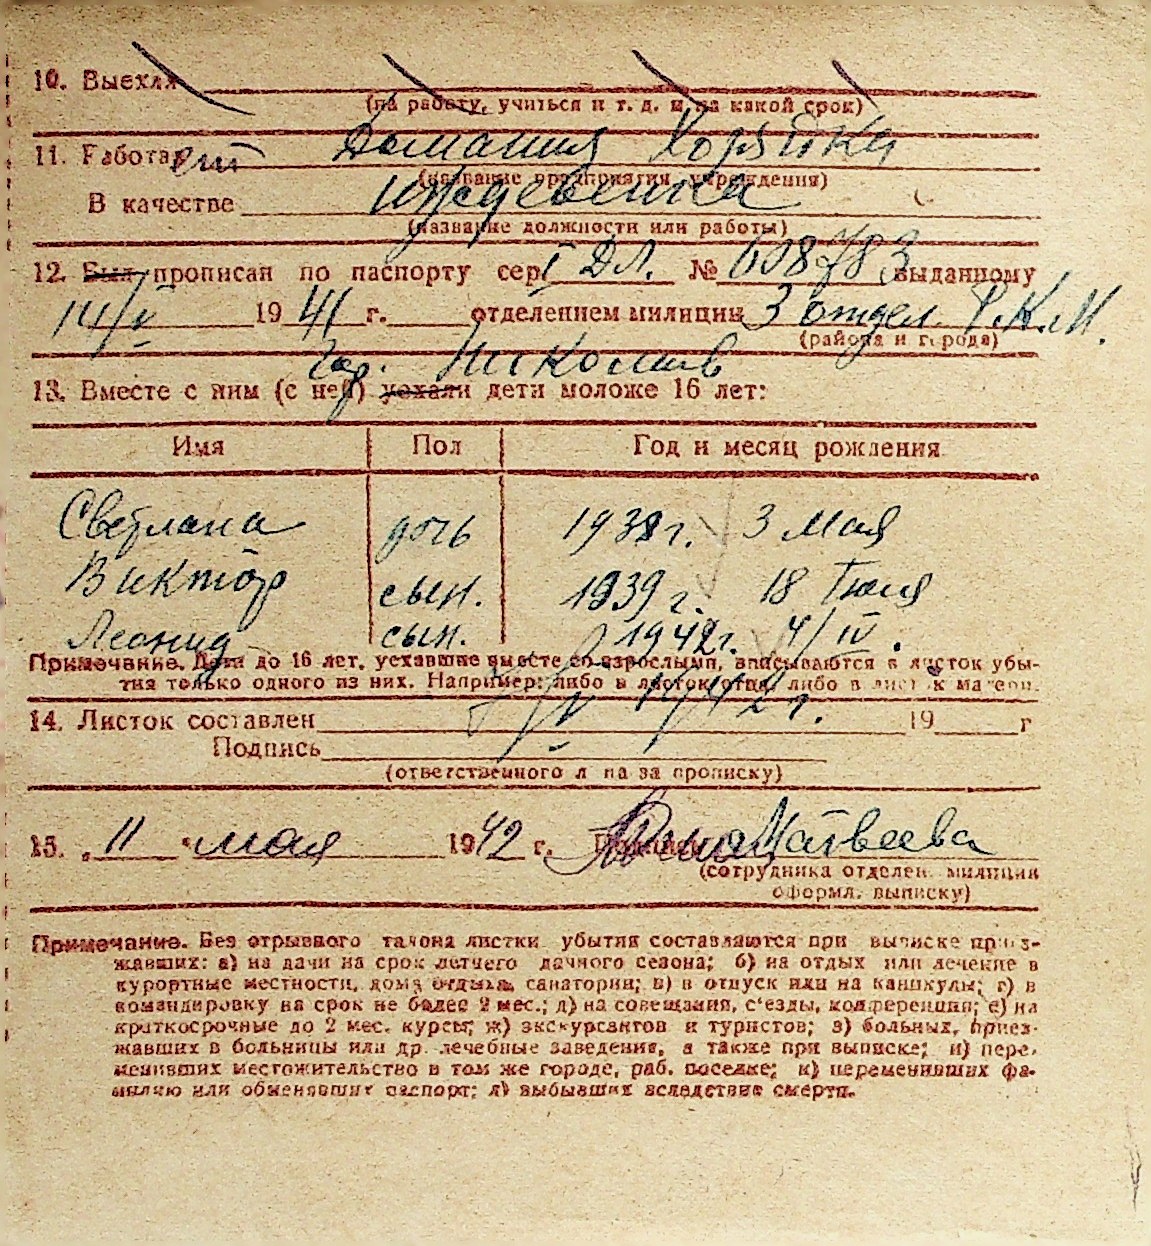 10. Выехал
(на работу, учиться и т. д. и на какой срок)
11. Работает Домашняя Хозяйка
(название предприятия, учреждения)
В качестве иждевенка
(название должности или работы)
12. Был прописан по паспорту сер. I ДЛ. № 608783 выданному
14/V 1941 г. отделением милиции 3 отдел. Р.К.М.
(района и города)
гор. Николаив
13. Вместе с ним (с ней) уехали дети моложе 16 лет:
Имя Пол Год и месяц рождения
Светлана дочь 1938 г. 3 Мая
Виктор сын. 1939 г. 18 Июля
Леонид сын. 1942 г. 4/IV.
Примечание. Дети до 16 лет, уехавшие вместе со взрослыми, вписываются в листок убы-
тия только одного из них. Например: либо в листок отца, либо в листок матери.
14. Листок составлен /V 1942 г. 19 г
Подпись
(ответственного лица за прописку)
15. „11“ мая 1942 г. Матвеева
(сотрудника отделен. милиции
оформл. выписку)
Примечание. Без отрывного талона листки убытия составляются при выписке приез-
жавших: а) на дачи на срок летнего дачного сезона; б) на отдых или лечение в
курортные местности, дома отдыха, санатории; в) в отпуск или на каникулы; г) в
командировку на срок не более 2 мес.; д) на совещания, с'езды, конференции; е) на
краткосрочные до 2 мес. курсы; ж) экскурсантов и туристов; з) больных, приез-
жавших в больницы или др. лечебные заведения, а также при выписке; и) пере-
менивших местожительство в том же городе, раб. поселке; к) переменивших фа-
милию или обменявших паспорт; л) выбывших вследствие смерти.